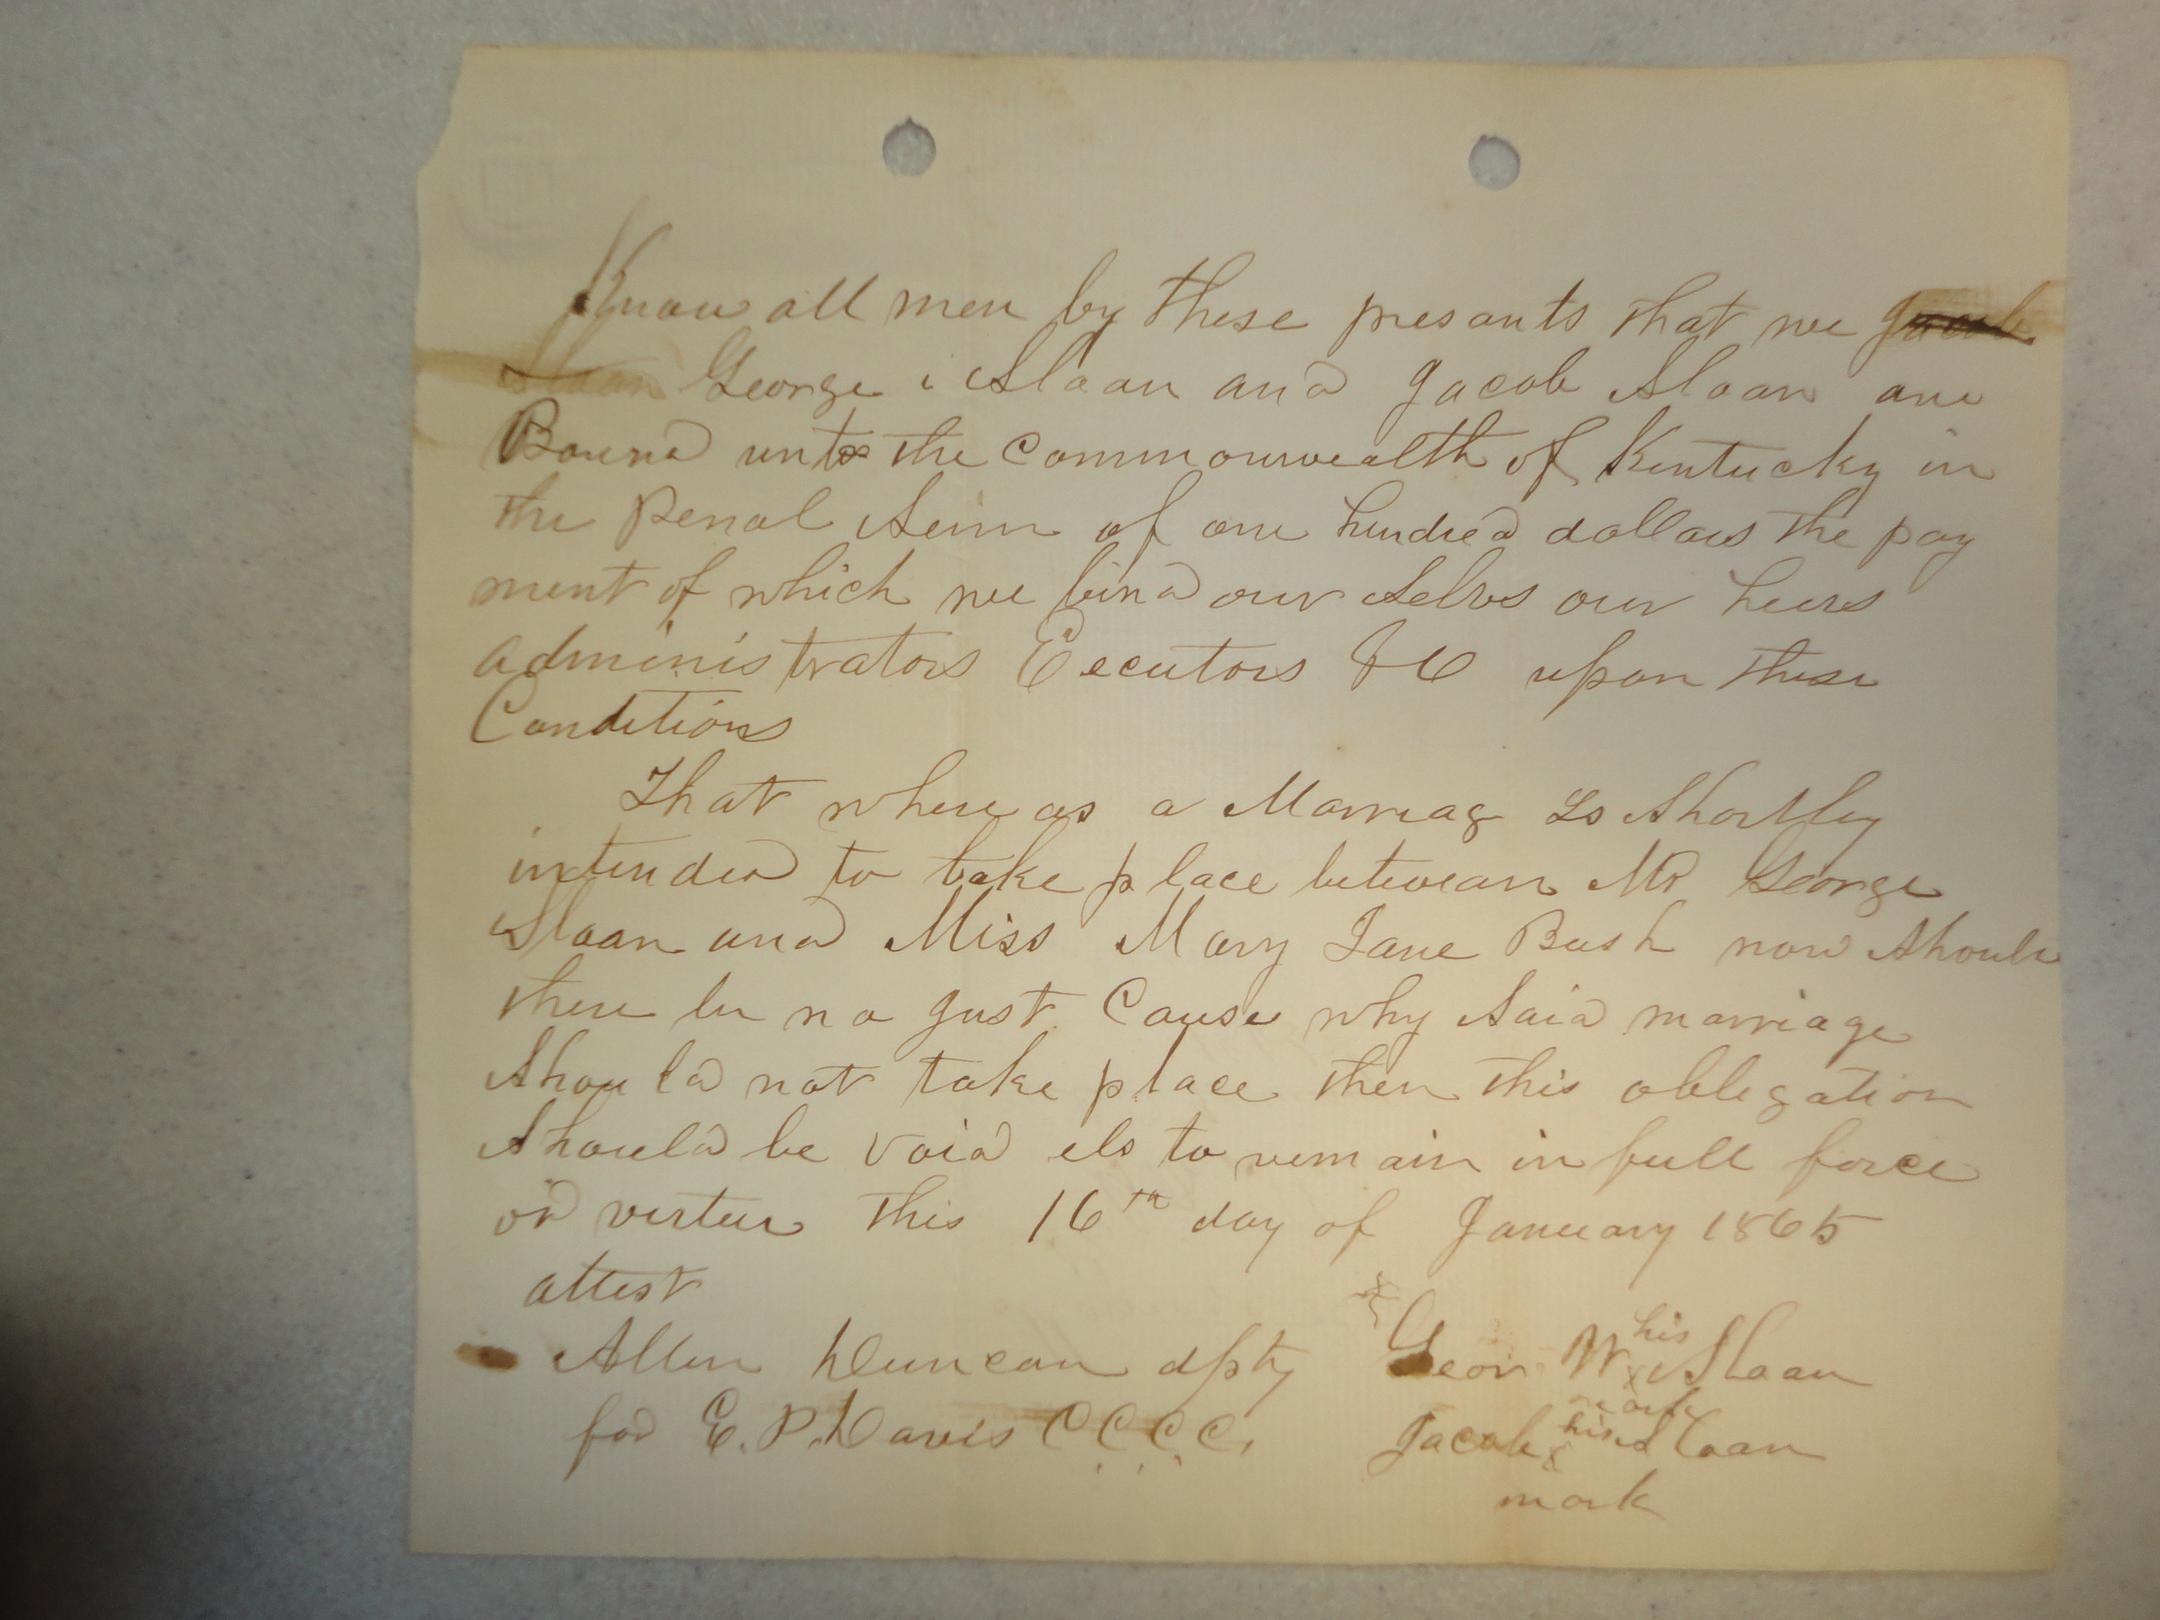 Know all men by these presants that we Jacob
Sloan George Sloan and Jacob Sloan are
Bound unto the Commonwealth of Kentucky in
the Penal Sum of one hundred dollars the pay
ment of which we bind our selvs our heirs
administrators Eecutors &C upon these
Conditions
That where as a Marriag Is Shortly
intended to take place betwean Mr George
Sloan and Miss Mary Jane Bush now Should
there be no Just Cause why Said marriage
Should not take place then this obligation
Should be void els to remain in full force
or vertue this 16th day of January 1865
attest
Allen Duncan dpty Geor W his x mark Sloan
for E. P. Davis C.C.C.C. Jacob his x mark Sloan